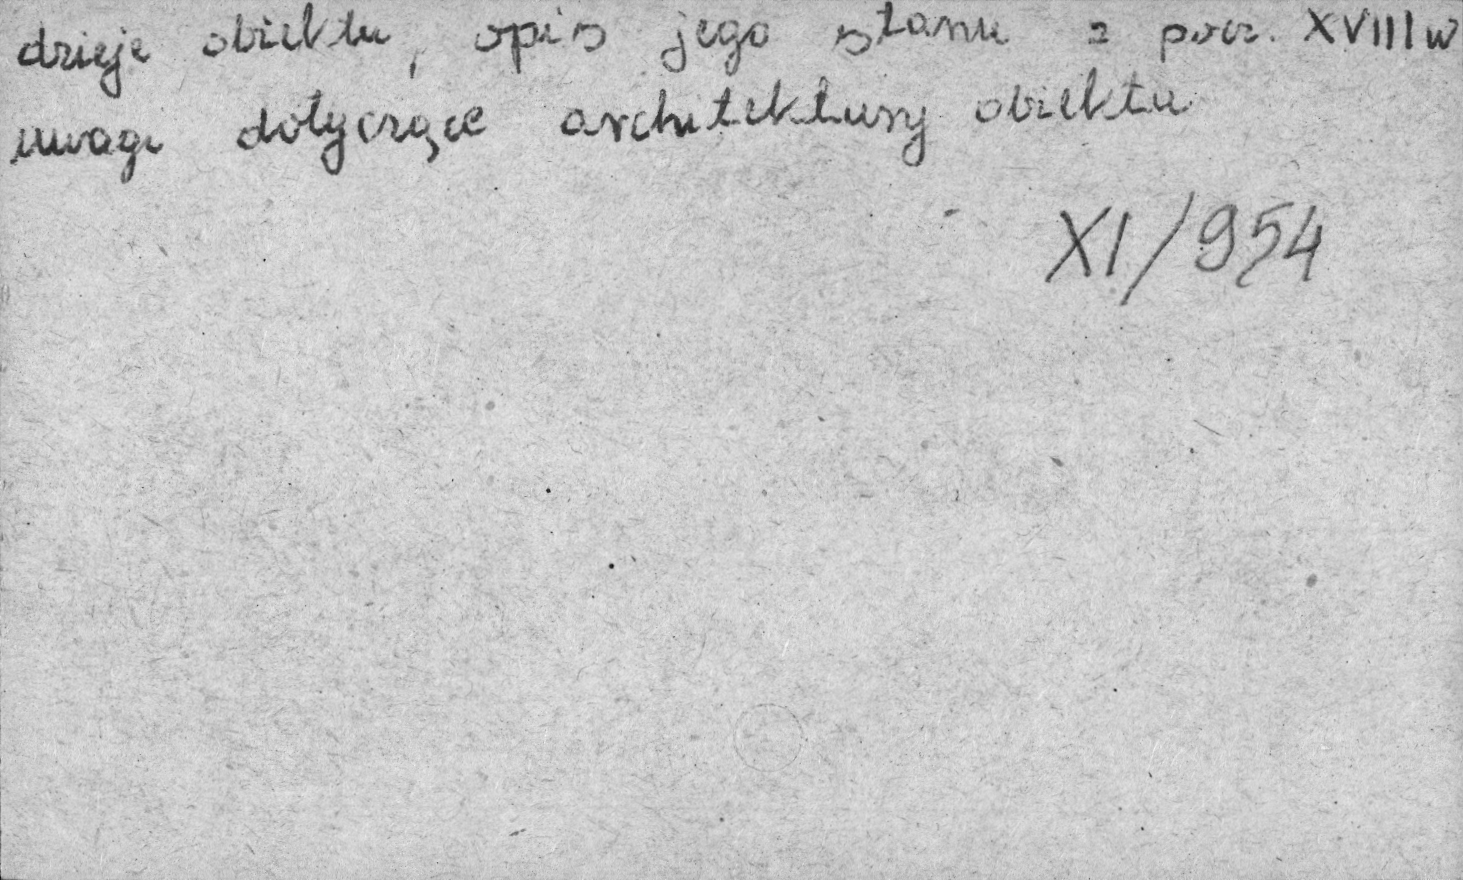 dzieje obiektu, opis jego stanu z pocz. XVIII w
uwagi dotyczące architektury obiektu
XI/954